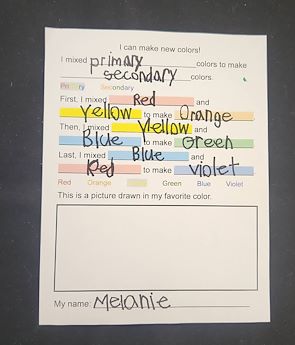 I can make new colors!
I mixed primary colors to make
secondary colors.
Primary Secondary
First, I mixed Red and
Yellow to make Orange
Then, I mixed Yellow and
Blue to make Green
Last, I mixed Blue and
Red to make violet
Red Orange Green Blue Violet
This is a picture drawn in my favorite color.
My name: Melanie